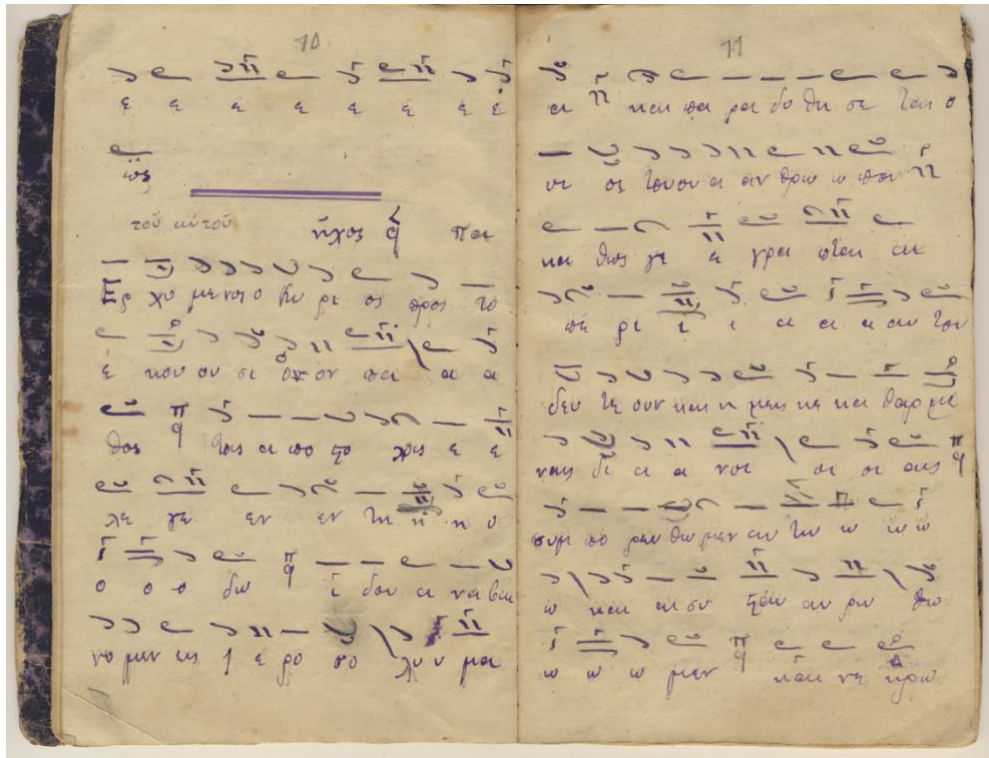 10
ε ε ε ε ε ε ε ε
τοῦ αὐτοῦ ἦχος Πα
Ερ χο με νος ο Κυ ρι ος προς το
ε κου ου σι ον πα α α
θος τοις α πο στο λοις ε ε
λε γε εν εν τη η η ο
ο ο ο δω ι δου α να βαι
νο μεν εις ι ε ρο σο λυ υ μα
11
α και πα ρα δο θη σε ται ο
υι ος του ου α αν θρω ω που
κα θως γε ε γρα πται αι
πε ρι ι ι α α α αυ του
δευ τε ουν και η μεις κε κα θαρ με
ναις δι α α νοι οι οι αις
συμ πο ρευ θω μεν αυ τω ω ω ω
ω και συ σταυ ρω θω
ω ω ω μεν και νε κρω